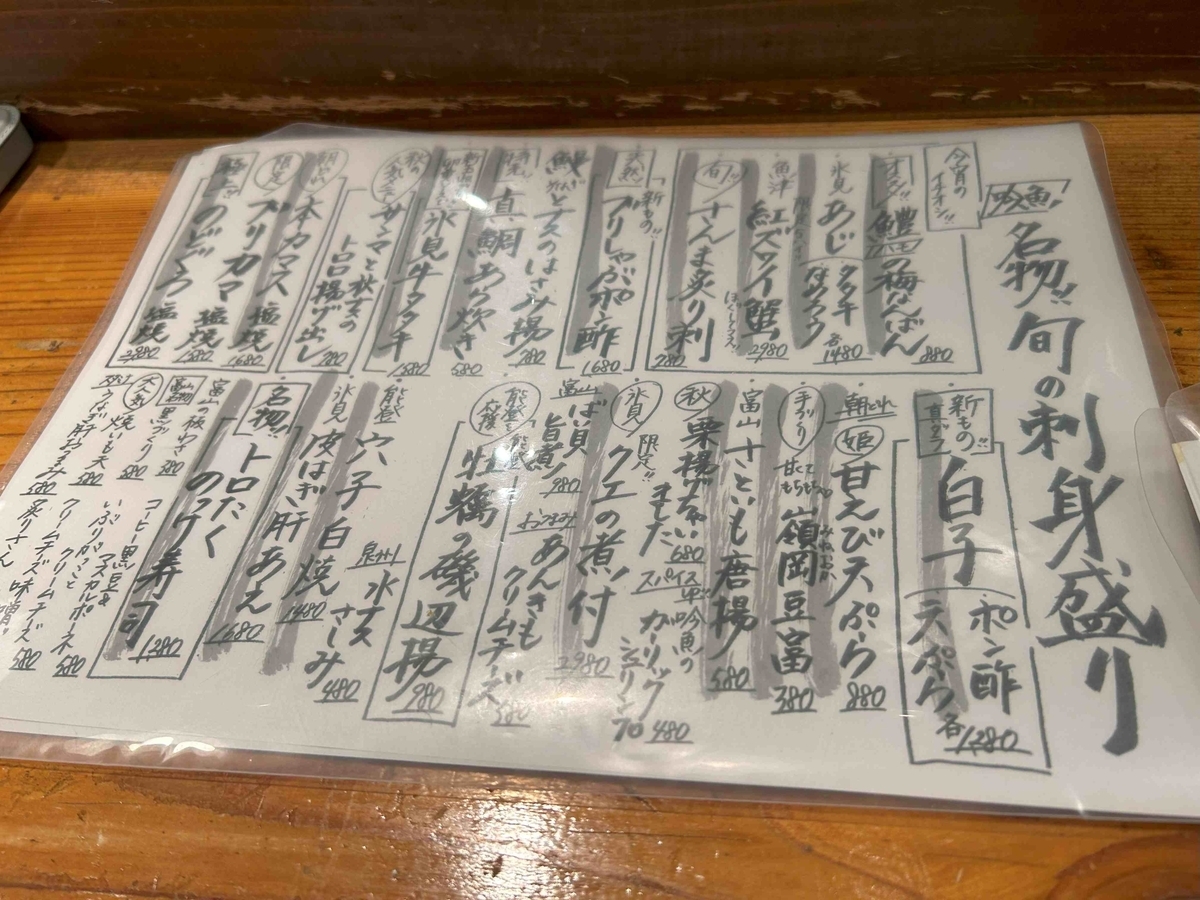 吟魚!
名物!! 旬の刺身盛り
今宵の
イチオシ!!
鱧の梅なんばん 880
氷見 あじ タタキ なめろう 各1480
魚津 紅ズワイ蟹 2980
旬!! さんま炙り刺 780
天然 新もの!!
ブリしゃぶポン酢 1680
とナスのはさみ揚 780
真鯛あら炊き 580
氷見牛タタキ 1580
秋の
サンマと秋ナスの
トロロ揚げ出し 780
本カマス塩焼 1680
限定 ブリカマ塩焼 1580
極上 のどぐろ塩焼 3880
新もの!!
白子 ポン酢 天ぷら 各1280
朝どれ
姫 甘えび天ぷら 880
手づくり
甘くて
もちもち 嶺岡豆富 380
みねおか
富山 さといも唐揚 580
秋 栗揚げちゃい
ました 680
スパイシー!! 吟魚の
ガーリック
シュリンプ 480
氷見 限定!! クエの煮付 2980
富山 ばい貝
旨煮! 980
おつまみ
あんきも
クリームチーズ 580
能登 牡蠣の磯辺揚 980
能登 穴子白焼 1480
泉州 水ナス
さしみ 480
氷見 皮はぎ肝あえ 1680
名物!! トロたく
のっけ寿司 1280
富山名物 黒づくり 380
富山の板わさ 380
大判 焼いも天 580
うなぎ肝おつまみ 580
コーヒー黒豆&
マスカルポーネ 580
いぶりがっこと
クリームチーズ 580
炙りさん
クリームチーズ味噌!! 580